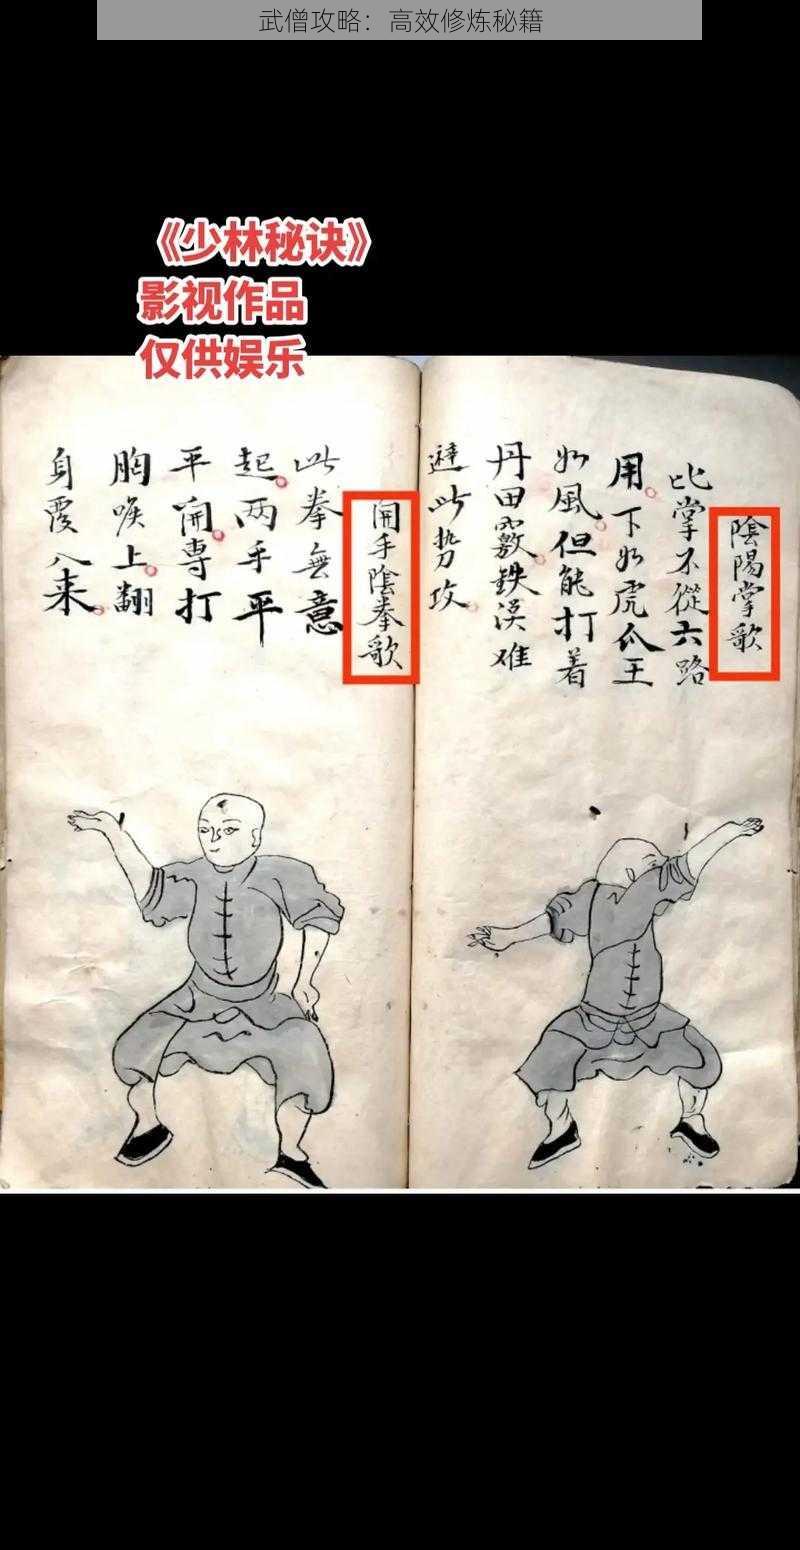 武僧攻略：高效修炼秘籍
《少林秘诀》
影视作品
仅供娱乐
陰陽掌歌
比掌不從六路
用下如虎爪王
如風但能打着
丹田竅鉄漢难
避此势攻
開手陰拳歌
此拳無意
起两手平
平開専打
胸喉上翻
身覆入来